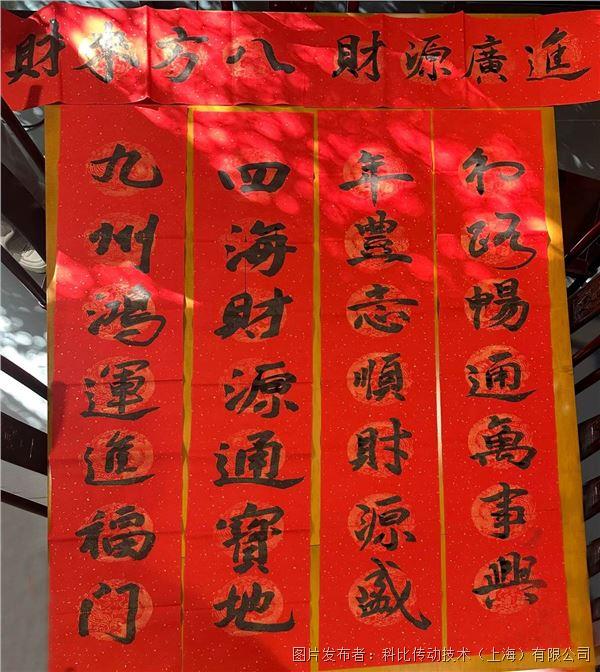 財源廣進
八方來財
行路暢通萬事興
年豊志順財源盛
四海財源通寶地
九州鴻運進福门
图片发布者：科比传动技术（上海）有限公司